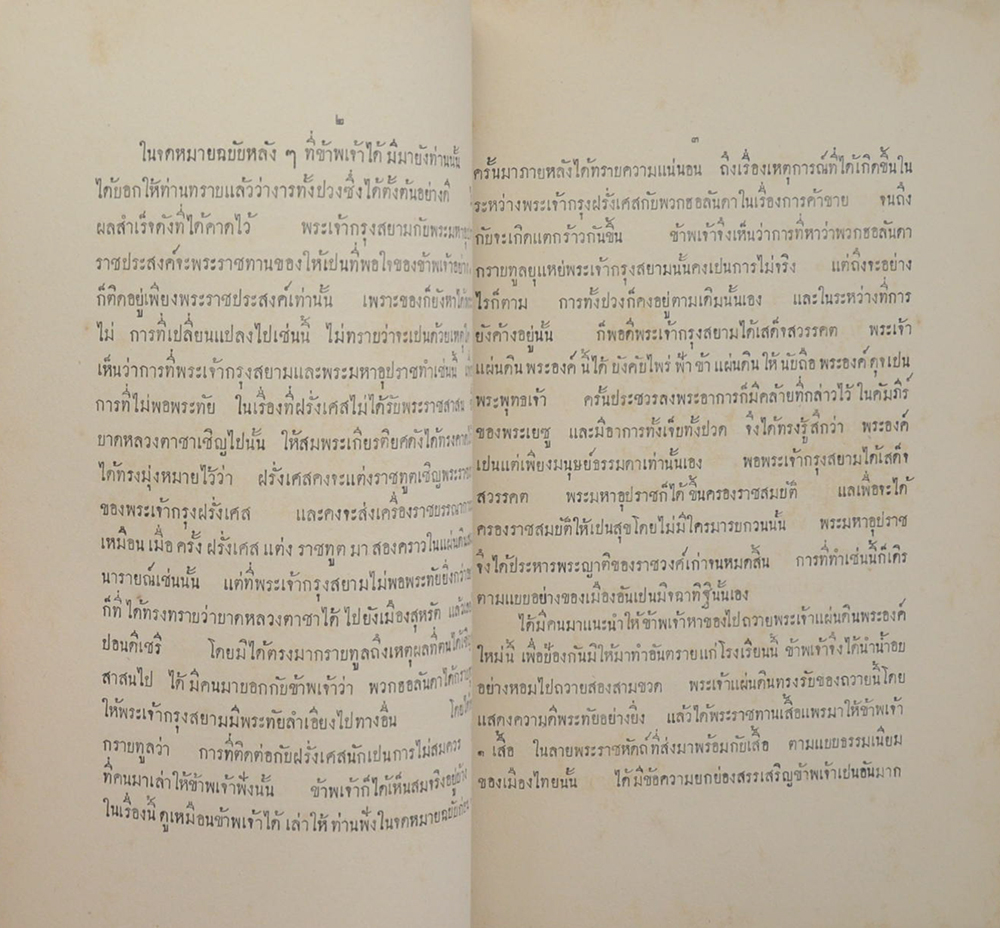 ๒
ในจดหมายฉบับหลัง ๆ ที่ข้าพเจ้าได้ มีมายังท่านนั้น
ได้บอกให้ท่านทราบแล้วว่างารทั้งปวงซึ่งได้ตั้งต้นอย่างดี
ผลสำเร็จดังที่ได้คาดไว้ พระเจ้ากรุงสยามกับพระมหาอุป
ราชประสงค์จะพระราชทานของให้เป็นที่พอใจของข้าพเจ้าอย่าง
ก็ติดอยู่เพียงพระราชประสงค์เท่านั้น เพราะของก็ยังหาได้
ไม่ การที่เปลี่ยนแปลงไปเช่นนี้ ไม่ทราบว่าจะเป็นด้วยเหตุ
เห็นว่าการที่พระเจ้ากรุงสยามและพระมหาอุปราชทำเช่นนี้
การที่ไม่พอพระทัย ในเรื่องที่ฝรั่งเศสไม่ได้รับพระราชสาสน
บาดหลวงตาชาเชิญไปนั้น ให้สมพระเกียรติยศดังได้ทรง
ได้ทรงมุ่งหมายไว้ว่า ฝรั่งเศสคงจะแต่งราชทูตเชิญพระราช
ของพระเจ้ากรุงฝรั่งเศส และคงจะส่งเครื่องราชบรรณาการ
เหมือน เมื่อ ครั้ง ฝรั่งเศส แต่ง ราชทูต มา สองคราวในแผ่นดินส
นารายณ์เช่นนั้น แต่ที่พระเจ้ากรุงสยามไม่พอพระทัยยิ่งกว่า
ก็ที่ ได้ทรงทราบว่าบาดหลวงตาชาได้ ไปยังเมืองสุหรัต แล้ว
ปอนดิเชรี โดยมิได้ตรงมากราบทูลถึงเหตุผลที่ตนได้เชิญ
สาสนไป ได้ มีคนมาบอกกับข้าพเจ้าว่า พวกฮอลันดาได้กราบทูล
ให้พระเจ้ากรุงสยามมีพระทัยลำเอียงไปทางอื่น โดยได้
กราบทูลว่า การที่ติดต่อกับฝรั่งเศสนักเป็นการไม่สมควร
ที่คนมาเล่าให้ข้าพเจ้าฟังนั้น ข้าพเจ้าก็ได้เห็นสมจริงอยู่บ้าง
ในเรื่องนี้ ดูเหมือนข้าพเจ้าได้ เล่าให้ ท่านฟังในจดหมายฉบับก่อน
๓
ครั้นมาภายหลังได้ทราบความแน่นอน ถึงเรื่องเหตุการณ์ที่ได้เกิดขึ้นใน
ระหว่างพระเจ้ากรุงฝรั่งเศสกับพวกฮอลันดาในเรื่องการค้าขาย จนถึง
กับจะเกิดแตกร้าวกันขึ้น ข้าพเจ้าจึงเห็นว่าการที่หาว่าพวกฮอลันดา
กราบทูลยุแหย่พระเจ้ากรุงสยามนั้นคงเป็นการไม่จริง แต่ถึงจะอย่าง
ไรก็ตาม การทั้งปวงก็คงอยู่ตามเดิมนั้นเอง และในระหว่างที่การ
ยังค้างอยู่นั้น ก็พอดีพระเจ้ากรุงสยามได้เสด็จสวรรคต พระเจ้า
แผ่นดิน พระองค์ นี้ ได้ บังคับไพร่ ฟ้า ข้า แผ่นดิน ให้ นับถือ พระองค์ ดุจเป็น
พระพุทธเจ้า ครั้นประชวรลงพระอาการก็มีคล้ายที่กล่าวไว้ ในคัมภีร์
ของพระเยซู และมีอาการทั้งเจ็บทั้งปวด จึงได้ทรงรู้สึกว่า พระองค์
เป็นแต่เพียงมนุษย์ธรรมดาเท่านั้นเอง พอพระเจ้ากรุงสยามได้เสด็จ
สวรรคต พระมหาอุปราชก็ได้ขึ้นครองราชสมบัติ แลเพื่อจะได้
ครองราชสมบัติให้เป็นสุขโดยไม่มีใครมารบกวนนั้น พระมหาอุปราช
จึงได้ประหารพระญาติของราชวงค์เก่าจนหมดสิ้น การที่ทำเช่นนี้ก็เดิร
ตามแบบอย่างของเมืองอันเป็นมิจฉาทิฐินั้นเอง
ได้มีคนมาแนะนำให้ข้าพเจ้าหาของไปถวายพระเจ้าแผ่นดินพระองค์
ใหม่นี้ เพื่อป้องกันมิให้มาทำอันตรายแก่โรงเรียนนี้ ข้าพเจ้าจึงได้นำน้ำอบ
อย่างหอมไปถวายสองสามขวด พระเจ้าแผ่นดินทรงรับของถวายนี้โดย
แสดงความดีพระทัยอย่างยิ่ง แล้วได้พระราชทานเสื้อแพรมาให้ข้าพเจ้า
๑ เสื้อ ในลายพระราชหัดถ์ที่ส่งมาพร้อมกับเสื้อ ตามแบบธรรมเนียม
ของเมืองไทยนั้น ได้มีข้อความยกย่องสรรเสริญข้าพเจ้าเป็นอันมาก